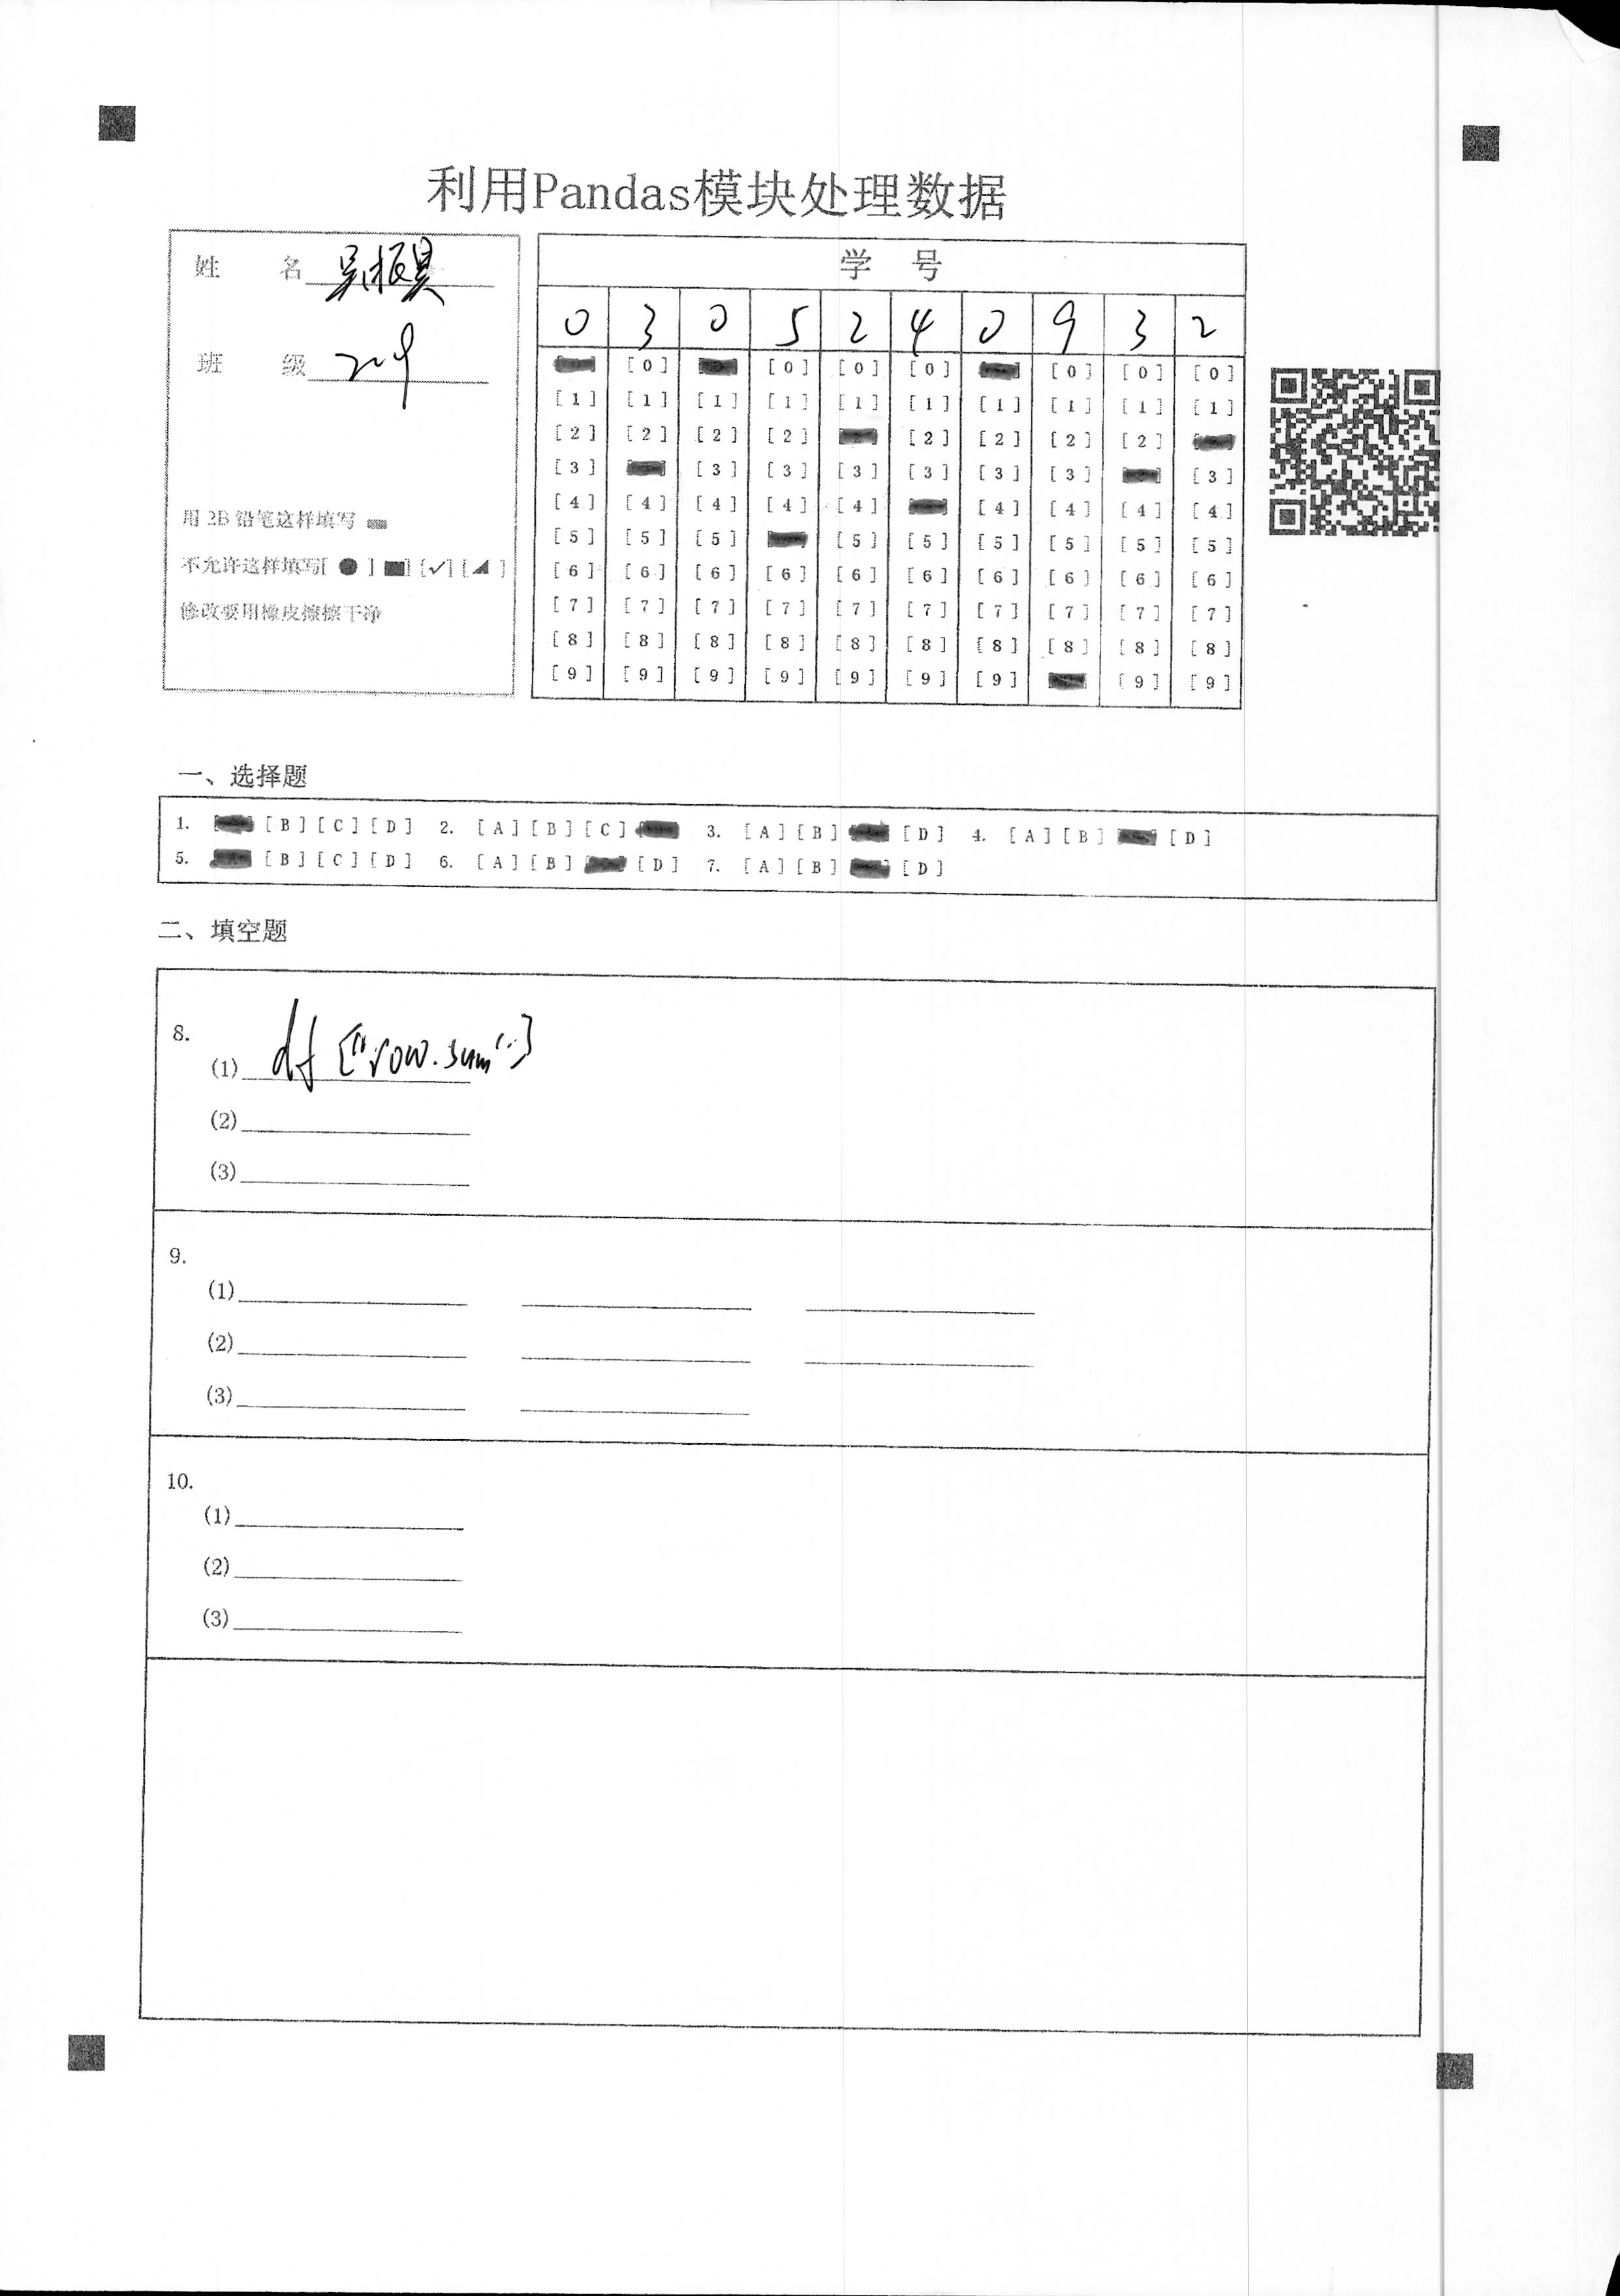 利用Pandas模块处理数据
姓 名 吴振昊
班 级 209
用 2B 铅笔这样填写
不允许这样填写[ ● ] [■] [✓] [◢ ]
修改要用橡皮擦擦干净
学 号
0 3 0 5 2 4 0 9 3 2
[0] [0] [0] [0] [0] [0] [0]
[1] [1] [1] [1] [1] [1] [1] [1] [1] [1]
[2] [2] [2] [2] [2] [2] [2] [2]
[3] [3] [3] [3] [3] [3] [3] [3]
[4] [4] [4] [4] [4] [4] [4] [4] [4]
[5] [5] [5] [5] [5] [5] [5] [5] [5]
[6] [6] [6] [6] [6] [6] [6] [6] [6] [6]
[7] [7] [7] [7] [7] [7] [7] [7] [7] [7]
[8] [8] [8] [8] [8] [8] [8] [8] [8] [8]
[9] [9] [9] [9] [9] [9] [9] [9] [9]
一、选择题
1. [B] [C] [D] 2. [A] [B] [C] 3. [A] [B] [D] 4. [A] [B] [D]
5. [B] [C] [D] 6. [A] [B] [D] 7. [A] [B] [D]
二、填空题
8.
(1) df ["row.sum"]
(2)
(3)
9.
(1)
(2)
(3)
10.
(1)
(2)
(3)